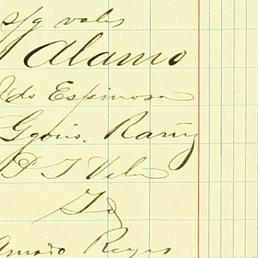 s/g vales
Alamo
Ydo Espinosa
Ggorio. Ramz
P T Vela
Id
Amado Reyes